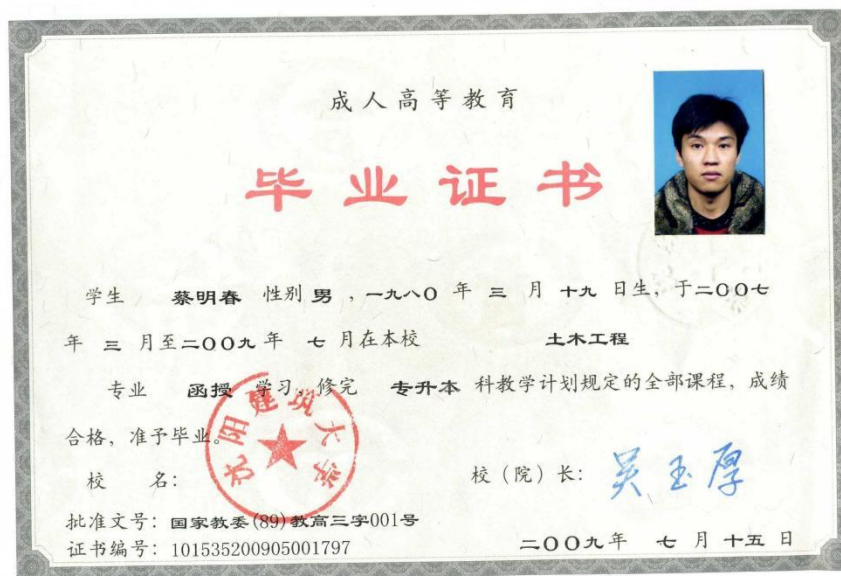 成人高等教育
毕业证书
学生 蔡明春 性别 男 ，一九八〇 年 三 月 十九 日生，于二〇〇七
年 三 月至二〇〇九 年 七 月在本校 土木工程
专业 函授 学习，修完 专升本 科教学计划规定的全部课程，成绩
合格，准予毕业。
沈阳建筑大学
校 名： 校（院）长： 吴玉厚
批准文号：国家教委(89)教高三字001号
证书编号：101535200905001797
二〇〇九 年 七 月 十五 日